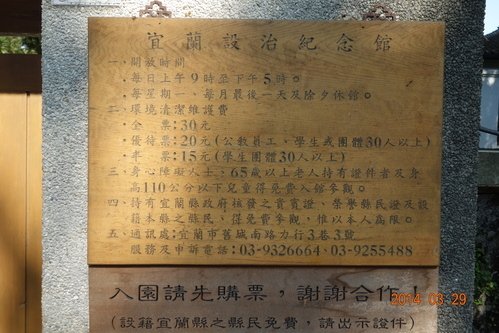 宜蘭設治紀念館
一、開放時間
．每日上午9時至下午5時。
．每星期一、每月最後一天及除夕休館。
二、環境清潔維護費
．全　票：30元
．優待票：20元（公教員工、學生或團體30人以上）
．半　票：15元（學生團體30人以上）
三、身心障礙人士、65歲以上老人持有證件者及身
高110公分以下兒童得免費入館參觀。
四、持有宜蘭縣政府核發之貴賓證、榮譽縣民證及設
籍本縣之縣民，得免費參觀，惟以本人為限。
五、通訊處：宜蘭市舊城南路力行3巷3號
服務及申訴電話：03-9326664．03-9255488
入園請先購票，謝謝合作！
（設籍宜蘭縣之縣民免費，請出示證件）
2014 03 29